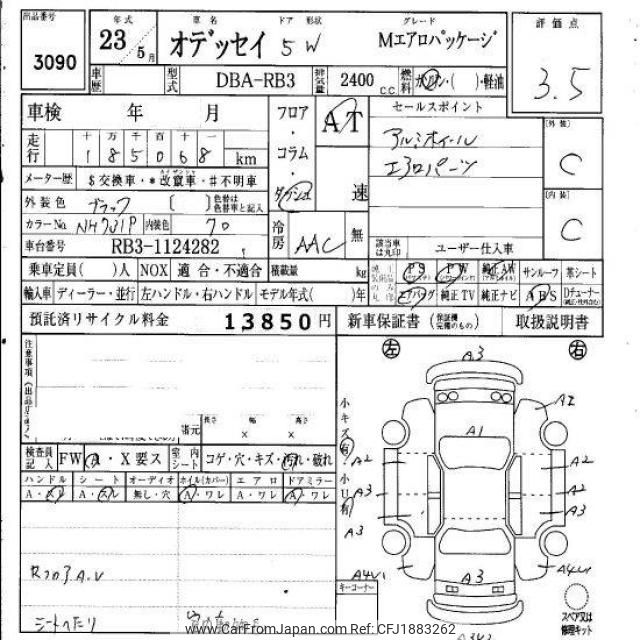 出品番号 3090
年式 23 5月
車名 オデッセイ
ドア 形状 5W
グレード Mエアロパッケージ
評価点 3.5
車歴 型式 DBA-RB3 排気量 2400 c.c. 燃料 ガソリン・( )・軽油
車検 年 月
フロア・コラム・ダッシュ
AT 速
セールスポイント
アルミホイール
エアロパーツ
[外装] C
[内装] C
走行 十 万 千 百 十 一
1 8 5 0 6 8 km
メーター歴 $交換車・*改竄車・#不明車
外装色 ブラック [ ] 色替は色替車と記入
カラーNo NH731P 内装色 70
車台番号 RB3-1124282
冷房 AAC 無
該当車は丸印 ユーザー仕入車
乗車定員( )人 NOX 適合・不適合 積載量 kg
PS PW 純正AW サンルーフ 革シート
輸入車 ディーラー・並行 左ハンドル・右ハンドル モデル年式( )年
エアバッグ 純正TV 純正ナビ ABS Dチューナー
預託済リサイクル料金 13850円
新車保証書 (保証継完備のもの) 取扱説明書
注意事項
諸元 長さ 幅 高さ
× ×
検査員記入 FW A・X要ス 室内シート コゲ・穴・キズ・汚れ・破れ
ハンドル シート オーディオ ホイル(カバー) エアロ ドアミラー
A・スレ A・スレ 無し・穴 A・ワレ A・ワレ A・ワレ
RフロアA.V
シートへたり
左 右
小キズ有・小U有
A3
A2
A1
A2 A2
A3 A2
A3 A3
A4U1 A3 A4U1
キーコーナー
スペア又は修理キット
www.CarFromJapan.com Ref: CFJ1883262